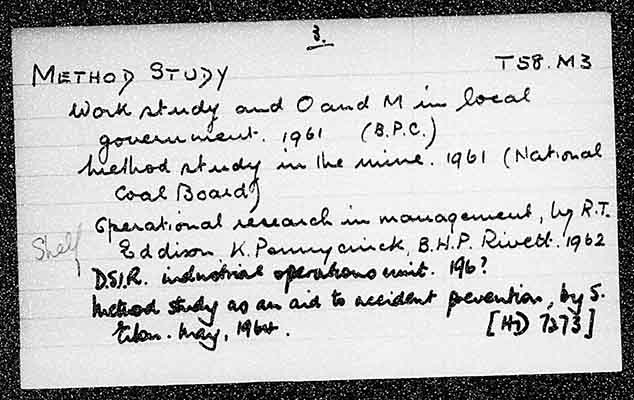 3.
METHOD STUDY T58.M3
Work study and O and M in local
government. 1961 (B.P.C.)
Method study in the mine. 1961 (National
Coal Board)
Operational research in management, by R.T.
Shelf
Eddison, K. Pennycuick, B.H.P. Rivett. 1962
D.S.I.R. industrial operations unit. 196?
Method study as an aid to accident prevention, by S.
May, 1964. 7273]